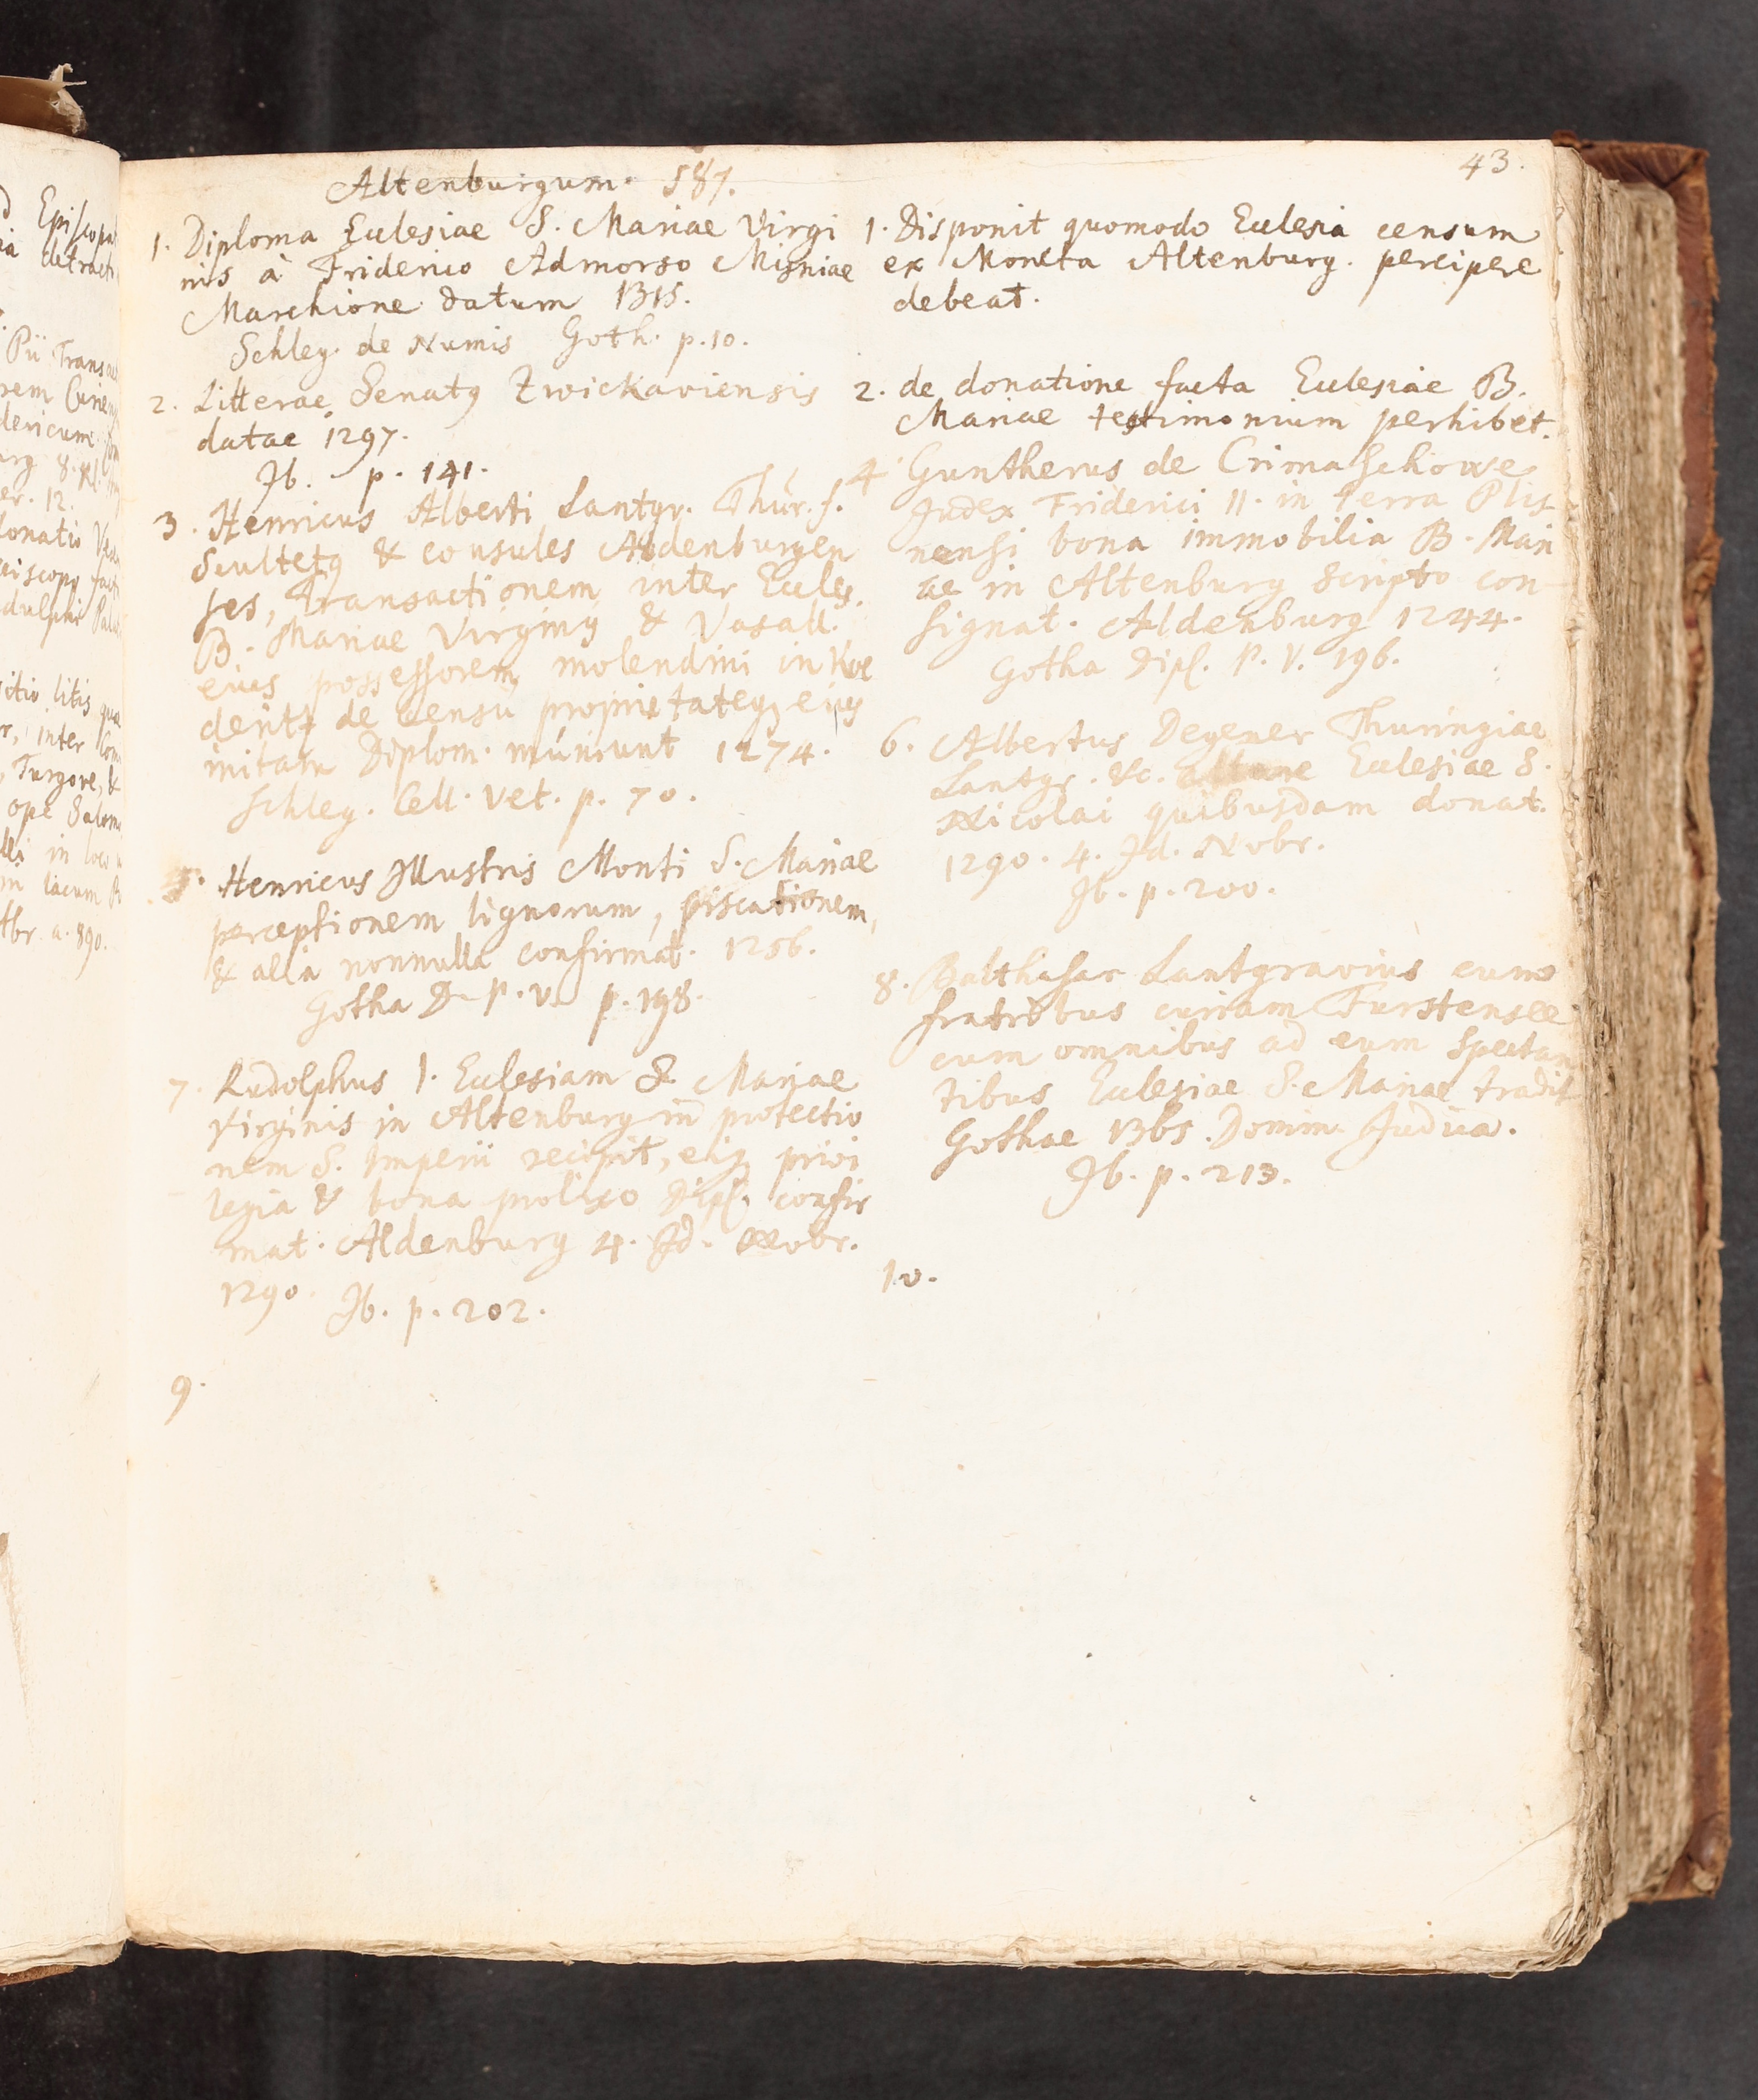 43.
Altenburgum. 587.
1. Diploma Eulesiae S. Mariae Virgi
nis à Friderico Admorso Misniae
Marchione datum 1315.
Schleg. de Numis Goth. p. 10.
2. Litterae Senatq Zwickaviensis
datae 1297.
Ib. p. 141.
3. Henricus Alberti Lantgr. Thur. f.
Scultetq & consules Aldenburgen
ses, Transactionem inter Eccles.
B. Mariae Virginis & Vasall.
eius possessorem molendini in Koe
de censu proprietateq eius
initam Diplom. muniunt 1274.
Schleg. Cell. Vet. p. 70.
5. Henricus Illustris Monti S. Mariae
perceptionem lignorum, piscationem,
& alia nonnulla confirmat. 1256.
Gotha D. p. v. p. 198.
7. Rudolphus I. Eclesiam S. Mariae
Virginis in Altenburg in protectio
nem S. Imperii recipit, eiq privi
legia & bona prolixo Dipl. confir
mat. Aldenburg 4. Id. Novbr.
1290. Ib. p. 202.
9.
1. Disponit quomodo Eclesia censum
ex Moneta Altenburg. percipere
debeat.
2. de donatione facta Eclesiae B.
Mariae testimonium perhibet.
4. Guntherus de Crimaschowe
Judex Friderici II. in Terra Plis
nensi bona immobilia B. Mari
ae in Altenburg scripto con
signat. Aldenburg 1244.
Gotha Dipl. P. V. 196.
6. Albertus Degener Thuringiae
Lantgr. &c. Eclesiae S.
Nicolai quibusdam donat.
1290. 4. Id. Novbr.
Ib. p. 200.
8. Balthasar Lantgravius cum
fratribus curiam Furstensee
cum omnibus ad eum spectan
tibus Eclesiae S. Mariae tradit
Gothae 1365. Domin. Judica.
Ib. p. 213.
10.